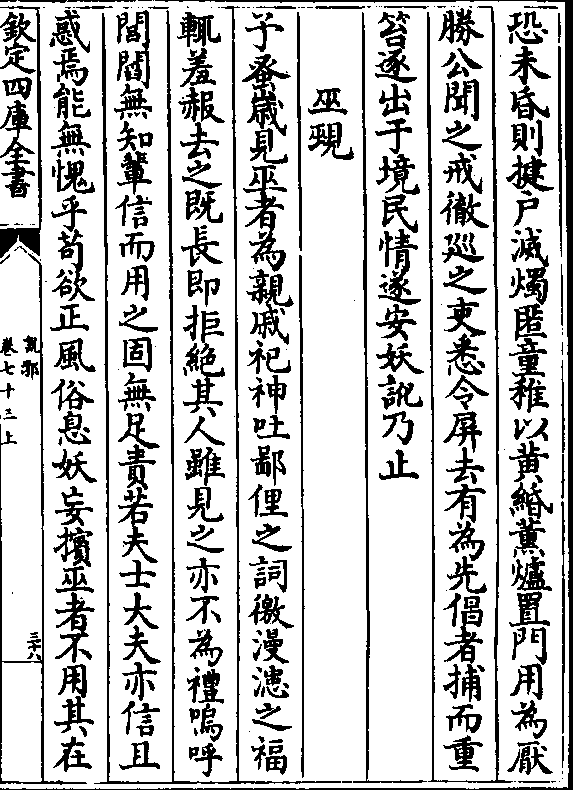 恐未昏則揵戶滅燭匿童稚以黄緍薰爐置門用為厭
勝公聞之戒徹廵之吏悉令屏去有為先倡者捕而重
笞逐出于境民情遂安妖訛乃止
巫覡
予蚤嵗見巫者為親戚祀神吐鄙俚之詞徼漫漶之福
輒羞赧去之既長即拒絶其人雖見之亦不為禮嗚呼
閭閻無知輩信而用之固無足責若夫士大夫亦信且
惑焉能無愧乎茍欲正風俗息妖妄擯巫者不用其在
欽定四庫全書
說郛
卷七十三上
三十八